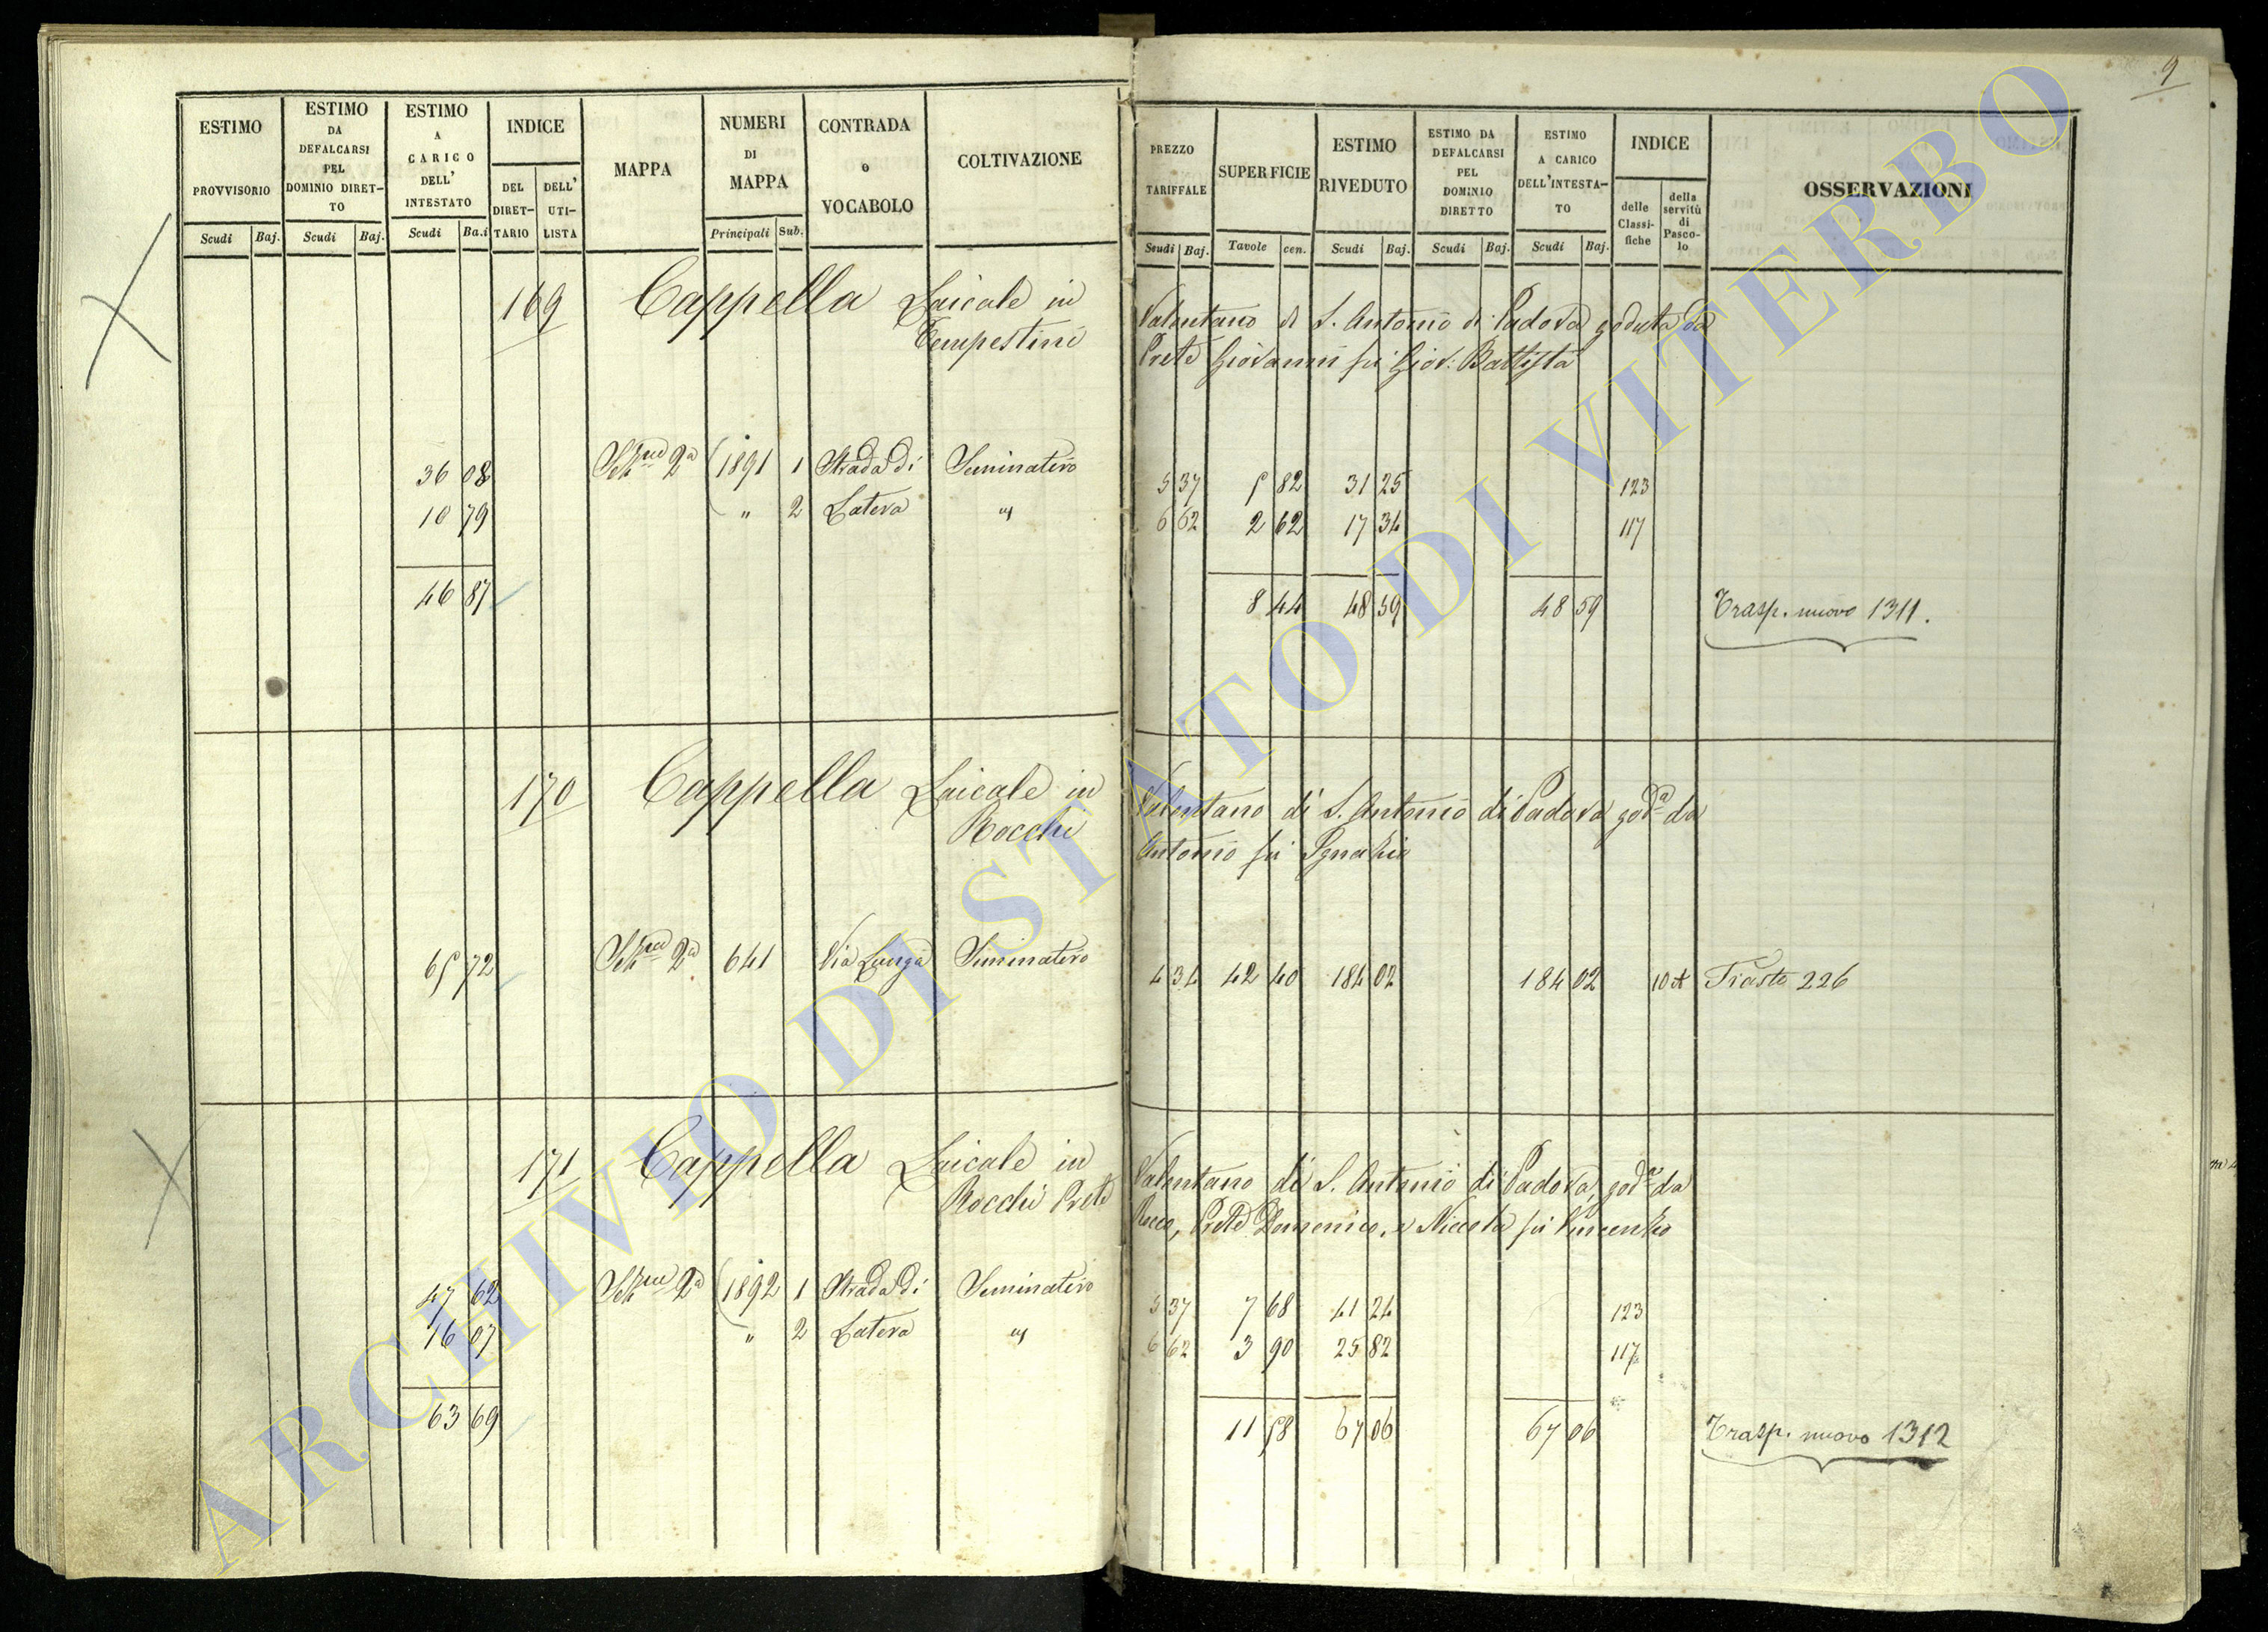 9
ESTIMO PROVVISORIO
ESTIMO DA DEFALCARSI PEL DOMINIO DIRET- TO
ESTIMO A CARICO DELL' INTESTATO
INDICE
DEL DIRET- TARIO
DELL' UTI- LISTA
MAPPA
NUMERI DI MAPPA
CONTRADA o VOCABOLO
COLTIVAZIONE
PREZZO TARIFFALE
SUPERFICIE
ESTIMO RIVEDUTO
ESTIMO DA DEFALCARSI PEL DOMINIO DIRETTO
ESTIMO A CARICO DELL'INTESTA- TO
INDICE
delle Classi- fiche
della servitù di Pasco- lo
OSSERVAZIONI
Scudi Baj. Scudi Baj. Scudi Ba.i Principali Sub.
Scudi Baj. Tavole cen. Scudi Baj. Scudi Baj. Scudi Baj.
169 Cappella Laicale in Valentano di S. Antonio di Padova goduta da
Tempestini Prete Giovanni fu Giov. Battista
36 08 Sez.ne 2a 1891 1 Strada di Seminativo 5 37 5 82 31 25 123
10 79 " 2 Latera " 6 62 2 62 17 34 117
46 87 8 44 48 59 48 59 Trasp. nuovo 1311.
170 Cappella Laicale in Valentano di S. Antonio di Padova god.a da
Rocchi Antonio fu Ignazio
65 72 Sez.ne 2a 641 Via Lunga Seminativo 4 34 42 40 184 02 184 02 Triasto 226
171 Cappella Laicale in Valentano di S. Antonio di Padova, god.a da
Rocchi Prete Rocco, Prete Domenico, e Nicola fu Vincenzo
47 62 Sez.ne 2a 1892 1 Strada di Seminativo 5 37 7 68 41 24 123
16 07 " 2 Latera " 6 62 3 90 25 82 117
63 69 11 58 67 06 67 06 Trasp. nuovo 1312
ARCHIVIO DI STATO DI VITERBO